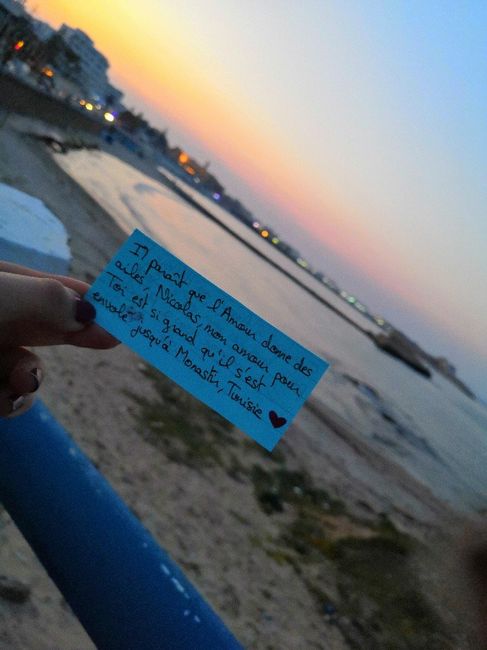 Il paraît que l'Amour donne des
ailes, Nicolas, mon amour pour
Toi est si grand qu'il s'est
envolé jusqu'à Monastir, Tunisie ♥